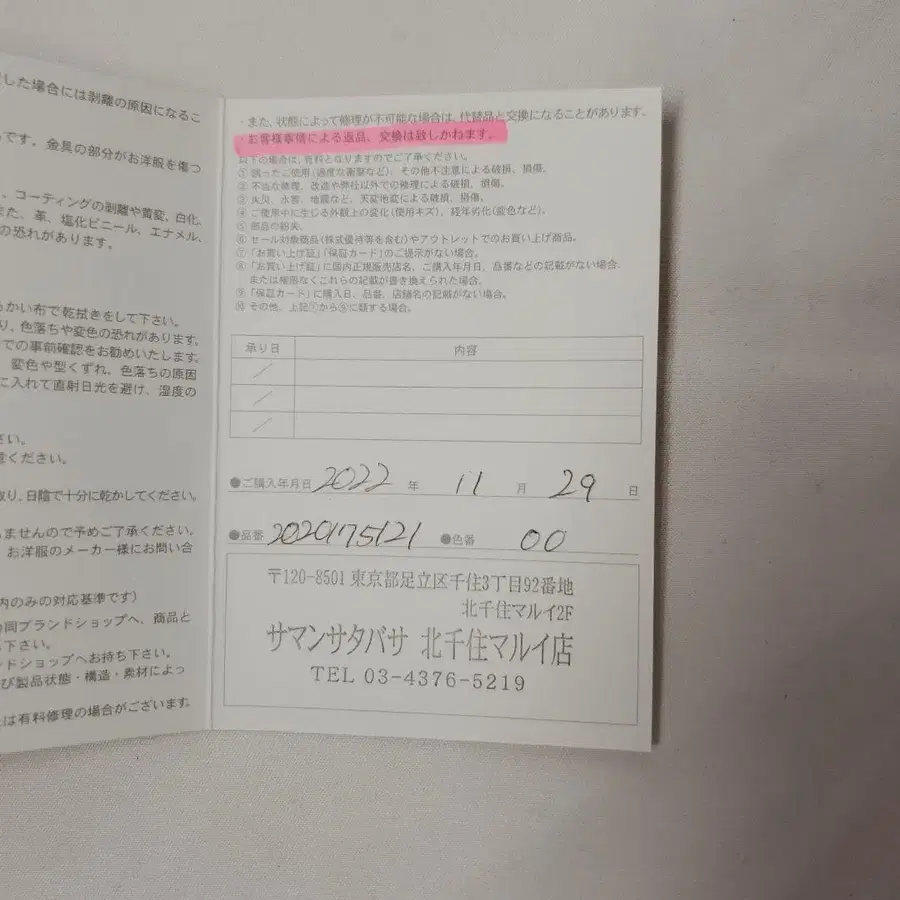 した場合には剥離の原因になるこ
です。金具の部分がお洋服を傷つ
、コーティングの剥離や黄変、白化、
また、革、塩化ビニール、エナメル、
の恐れがあります。
らかい布で乾拭きをして下さい。
り、色落ちや変色の恐れがあります。
での事前確認をお勧めいたします。
変色や型くずれ、色落ちの原因
に入れて直射日光を避け、湿度の
さい。
意ください。
取り、日陰で十分に乾かしてください。
ませんので予めご了承ください。
お洋服のメーカー様にお問い合
内のみの対応基準です)
同ブランドショップへ、商品と
下さい。
ンドショップへお持ち下さい。
び製品状態・構造・素材によっ
は有料修理の場合がございます。
・また、状態によって修理が不可能な場合は、代替品と交換になることがあります。
・お客様事情による返品、交換は致しかねます。
以下の場合は、有料となりますのでご了承ください。
① 誤ったご使用(過度な衝撃など)、その他不注意による破損、損傷。
② 不当な修理、改造や弊社以外での修理による破損、損傷。
③ 火災、水害、地震など、天変地変による破損、損傷。
④ ご使用中に生じる外観上の変化(使用キズ)、経年劣化(変色など)。
⑤ 部品の紛失。
⑥ セール対象商品(株式優待等を含む)やアウトレットでのお買い上げ商品。
⑦ 「お買い上げ証」「保証カード」のご提示がない場合。
⑧ 「お買い上げ証」に国内正規販売店名、ご購入年月日、品番などの記載がない場合、
または権限なくこれらの記載が書き換えられた場合。
⑨ 「保証カード」に購入日、品番、店舗名の記載がない場合。
⑩ その他、上記①から⑨に類する場合。
承り日 内容
／
／
／
●ご購入年月日 2022 年 11 月 29 日
●品番 2020175121 ●色番 00
〒120-8501 東京都足立区千住3丁目92番地
北千住マルイ2F
サマンサタバサ 北千住マルイ店
TEL 03-4376-5219